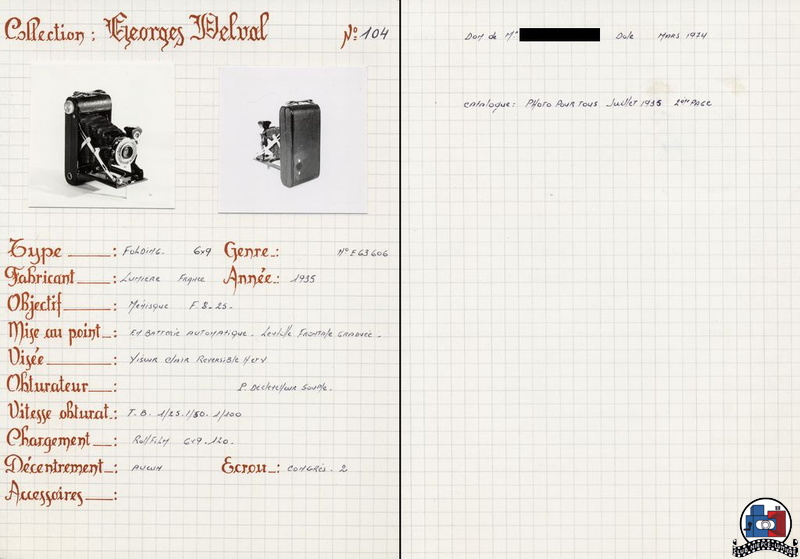 Collection : Georges Delval Nº 104
Type : Folding. 6x9 Genre : Nº E63606
Fabricant : Lumiere France Année : 1935
Objectif : Ménisque F. 8-25.
Mise au point : En Batterie Automatique. Lentille Frontale graduée.
Visée : Viseur Clair Reversible H et V
Obturateur : P. Declencheur Souple.
Vitesse obturat. : T. B. 1/25. 1/50. 1/100
Chargement : Roll Film 6x9. 120.
Décentrement : Aucun Ecrou : Congrès. 2
Accessoires :
Don de Mr Date Mars 1974
Catalogue : Photo Pour Tous Juillet 1935 2em Page